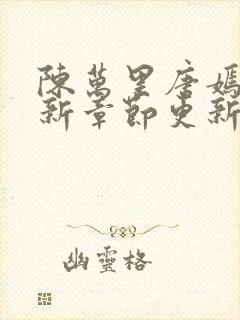 陳萬里唐嫣
新章節更新
幽靈格